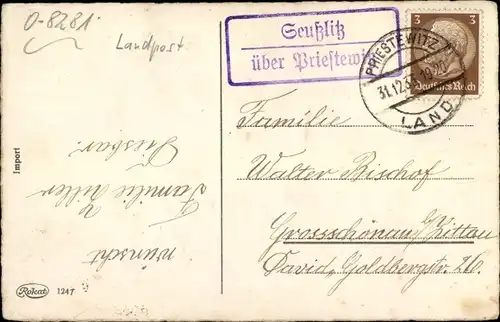 O-8281
Landpost
Seußlitz
über Priestewitz
PRIESTEWITZ
31.12.3
19-20
LAND
3 3
Deutsches Reich
Familie
Walter Bischof
Grossschönau/Zittau
David, Goldbergstr.
wünscht
Familie Ziller
Import
Rokat
1247